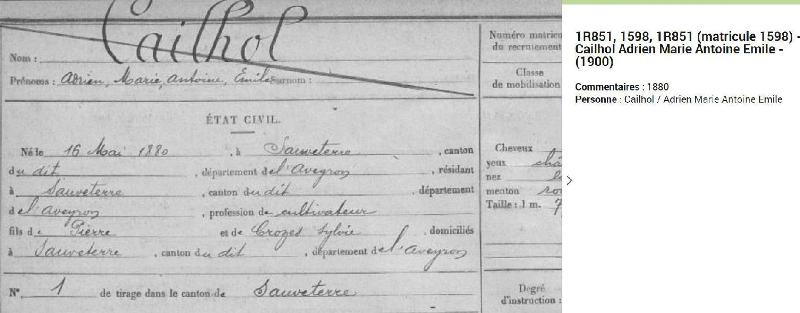 Cailhol
Nom :
Prénoms : Adrien, Marie, Antoine, Emile Surnom :
ÉTAT CIVIL.
Né le 16 Mai 1880, à Sauveterre, canton
du dit, département de l'Aveyron, résidant
à Sauveterre, canton du dit, département
de l'aveyron, profession de cultivateur
fils de Pierre et de Crozes Sylvie, domiciliés
à Sauveterre, canton du dit, département de l'aveyron
N° 1 de tirage dans le canton de Sauveterre
Numéro matricu
du recrutement
Classe
de mobilisation
Cheveux
yeux châ
nez
menton ro
Taille : 1 m. 7
Degré
d'instruction :
1R851, 1598, 1R851 (matricule 1598) -
Cailhol Adrien Marie Antoine Emile -
(1900)
Commentaires : 1880
Personne : Cailhol / Adrien Marie Antoine Emile